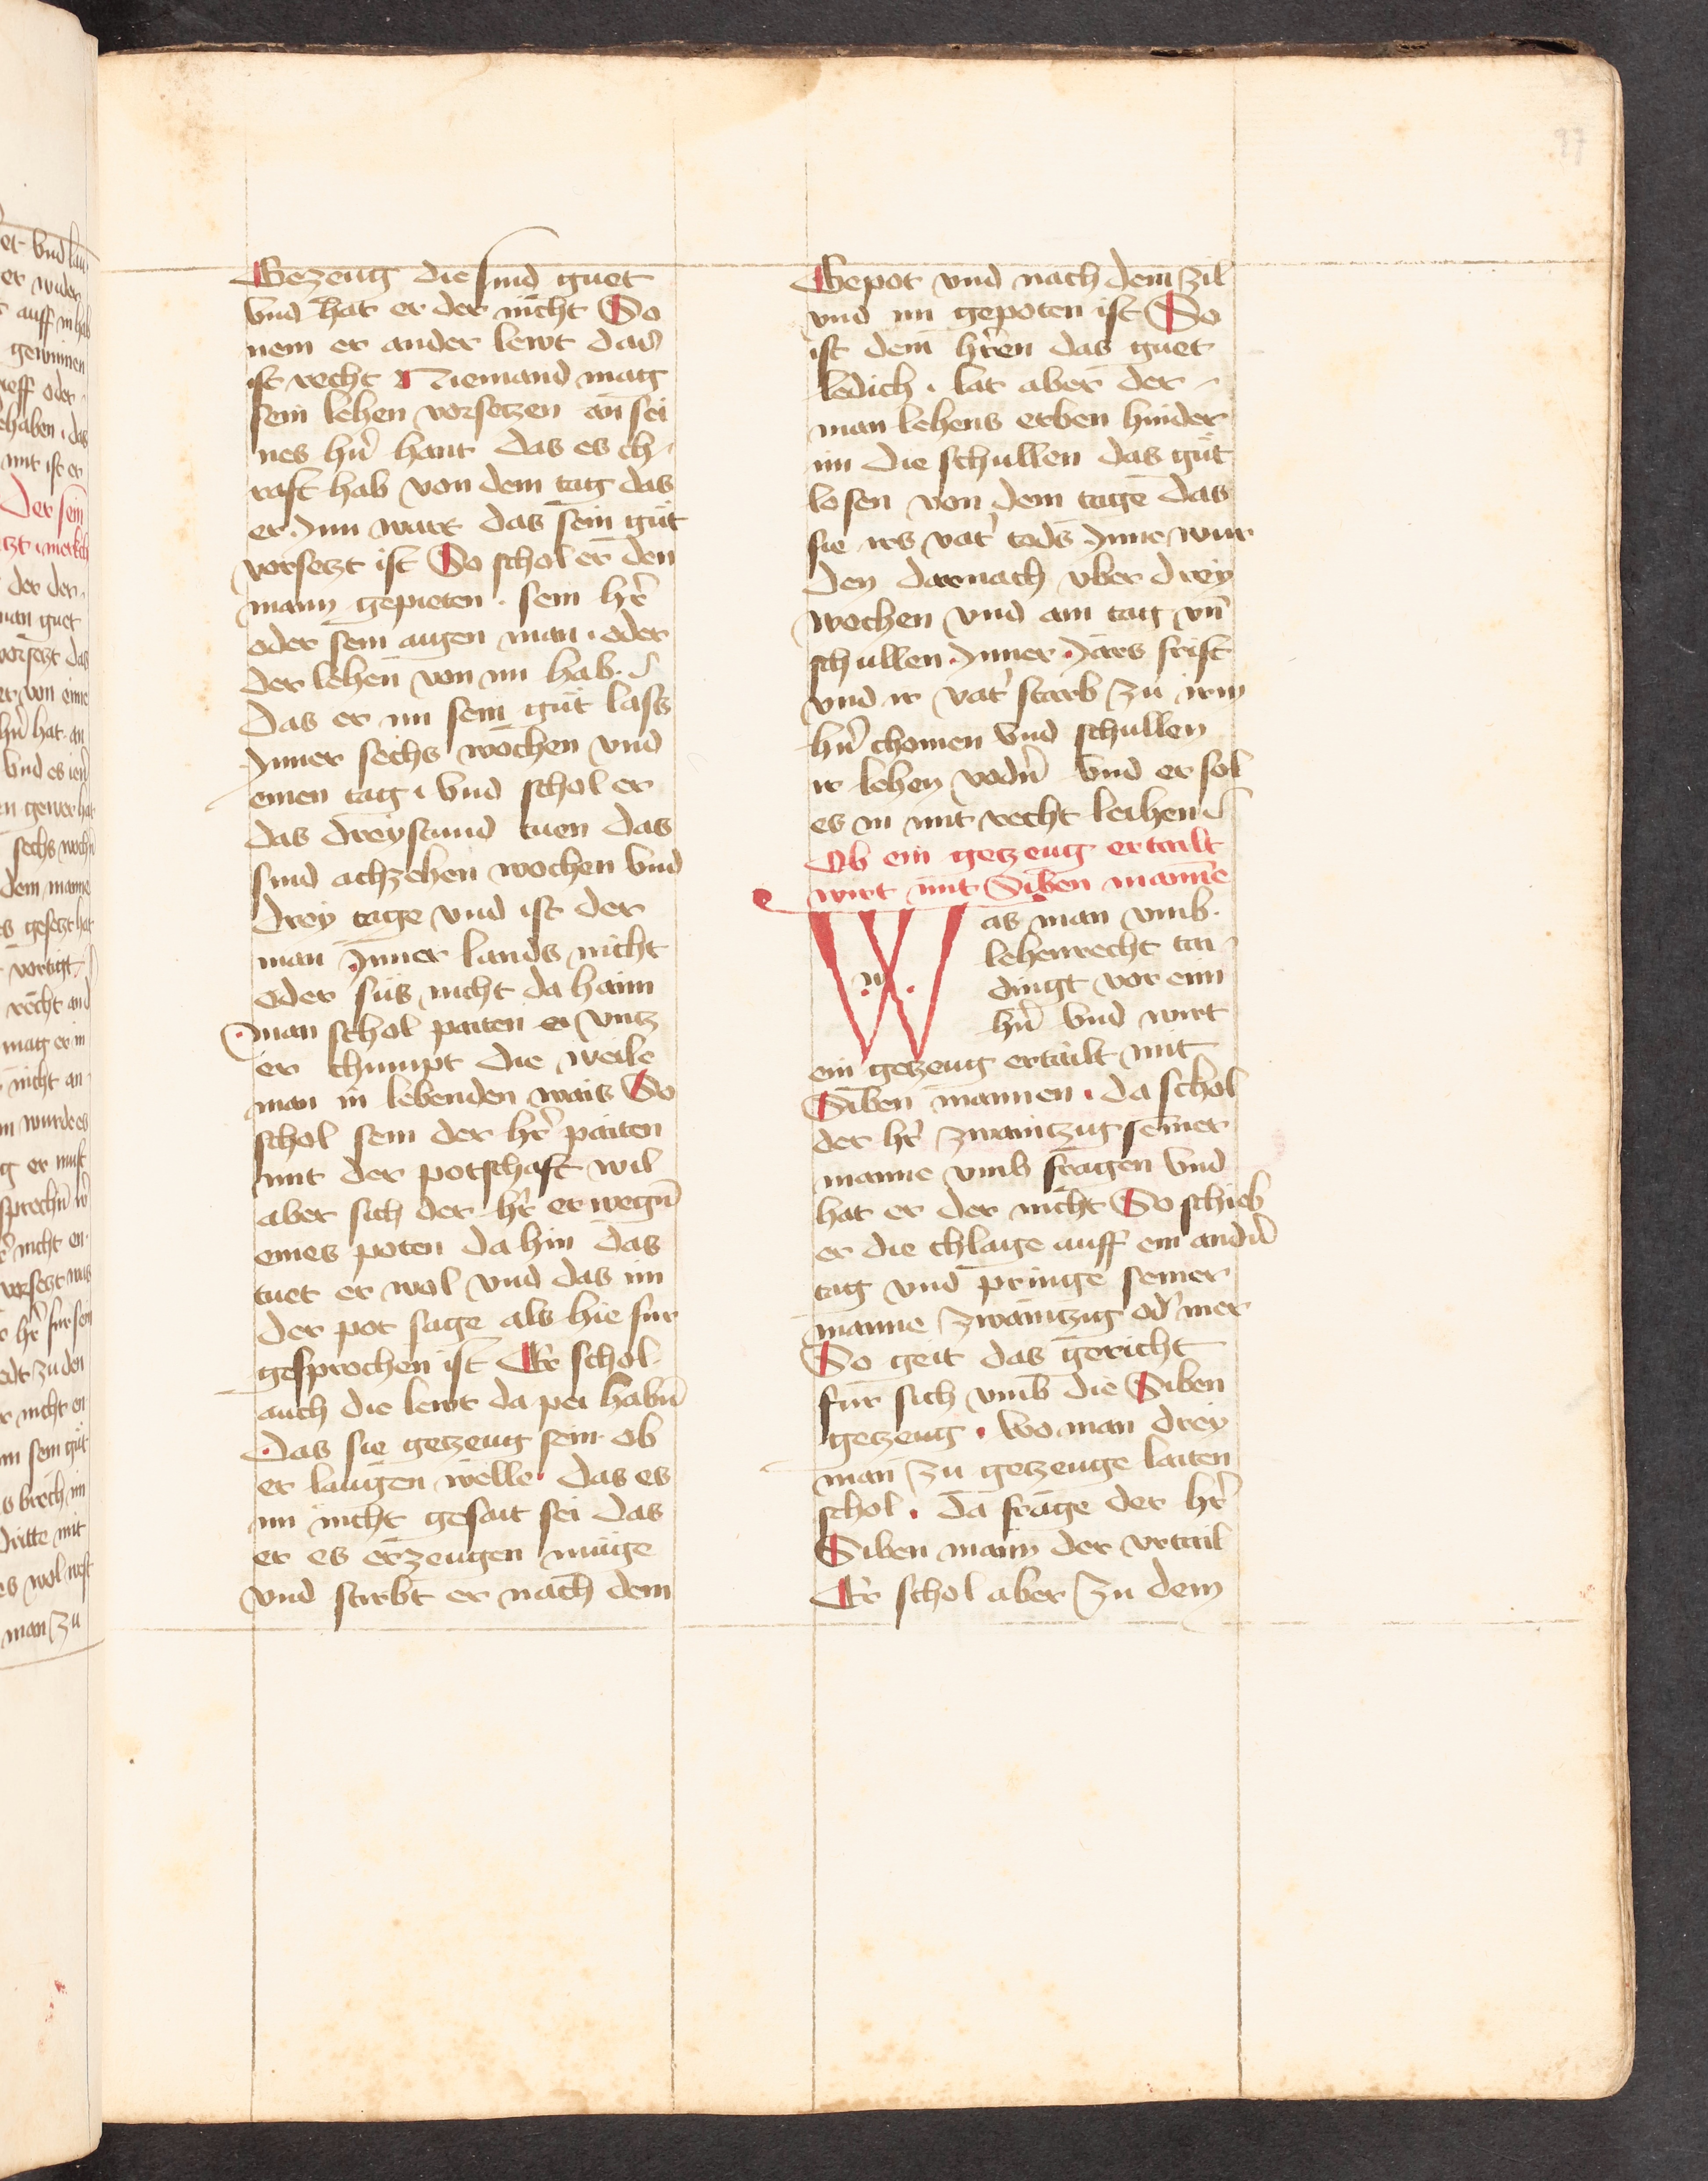 Gezeug die sind guet
vnd hat er der nicht So
nem er ander lewt das
ist recht Niemand mag
sein lehen vorsetzen an sei
nes hr̄n hant das es ch-
raft hab von dem tag das
er Jnn wart das sein gůt
vorsetzt ist So schol er den
mann gepieten . sein hr̄
oder sein augen man . oder
der lehen von im hab .
Das er im sein gůt lass
Jnner sechs wochen vnd
einen tag . vnd schol er
das dreystund tuen das
sind achzehen wochen vnd
drey tage vnd ist der
man Jnner lands nicht
oder sus nicht da haim
man schol paiten er vntz
er chumpt die weile
man in lebenden wais So
schol sein der hr̄ paiten
mit der potschaft wil
aber sich der hr̄ erwegn̄
eines poten da hin das
tuet er wol vnd das im
der pot sage als hie fur
gesprochen ist Er schol
auch die lewt da pei habn̄
Das sie getzeug sein ob
er laugen welle . das es
im nicht gesait sei das
er es erzeugen muge
vnd stirbt er nach dem
Gepot vnd nach dem zil
vnd im gepoten ist So
ist dem hr̄ren das guet
ledich . lat aber der -
man lehens erben hinder
im die schullen das gůt
losen von dem tage das
sie irs vat̄ tods Jnne wur
den darnach vber drey
wochen vnd am tag vn̄
schullen Jnner Jars frist
vnd ir vat̄ starb zu irm
hr̄n chomen vnd schullen
ir lehen vodn̄ vnd er sol
es in mit recht leihen
Ob ein getzeug ertailt
wirt mit Siben manne
Was man vmb .
lehenrecht tai-
dingt vor eim
hr̄n vnd wirt
ein getzeug ertailt mit
Siben mannen . da schol
der hr̄ zwaintzug seiner
manne vmb fragen vnd
hat er der nicht So schieb
er die chlage auff ein andn̄
tag vnd pringe seiner
manne zwaintzig od̄ mer
So geit das gericht
fur sich vmb die Siben
getzeug . wo man drey
man zu getzeuge laiten
schol . da frage der hr̄
Siben mann der vrtail
Er schol aber zu dem